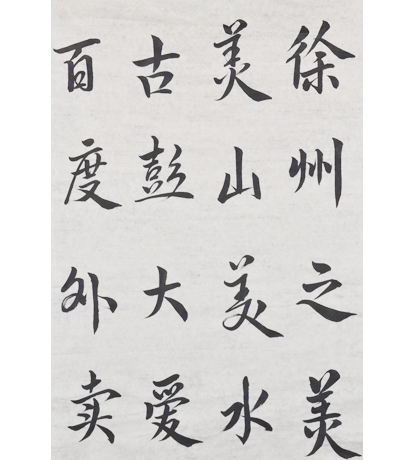 徐州之美
美山美水
古彭大爱
百度外卖